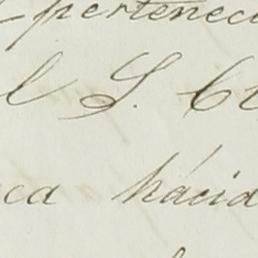 perteneci
l S. Cu
ca hácid